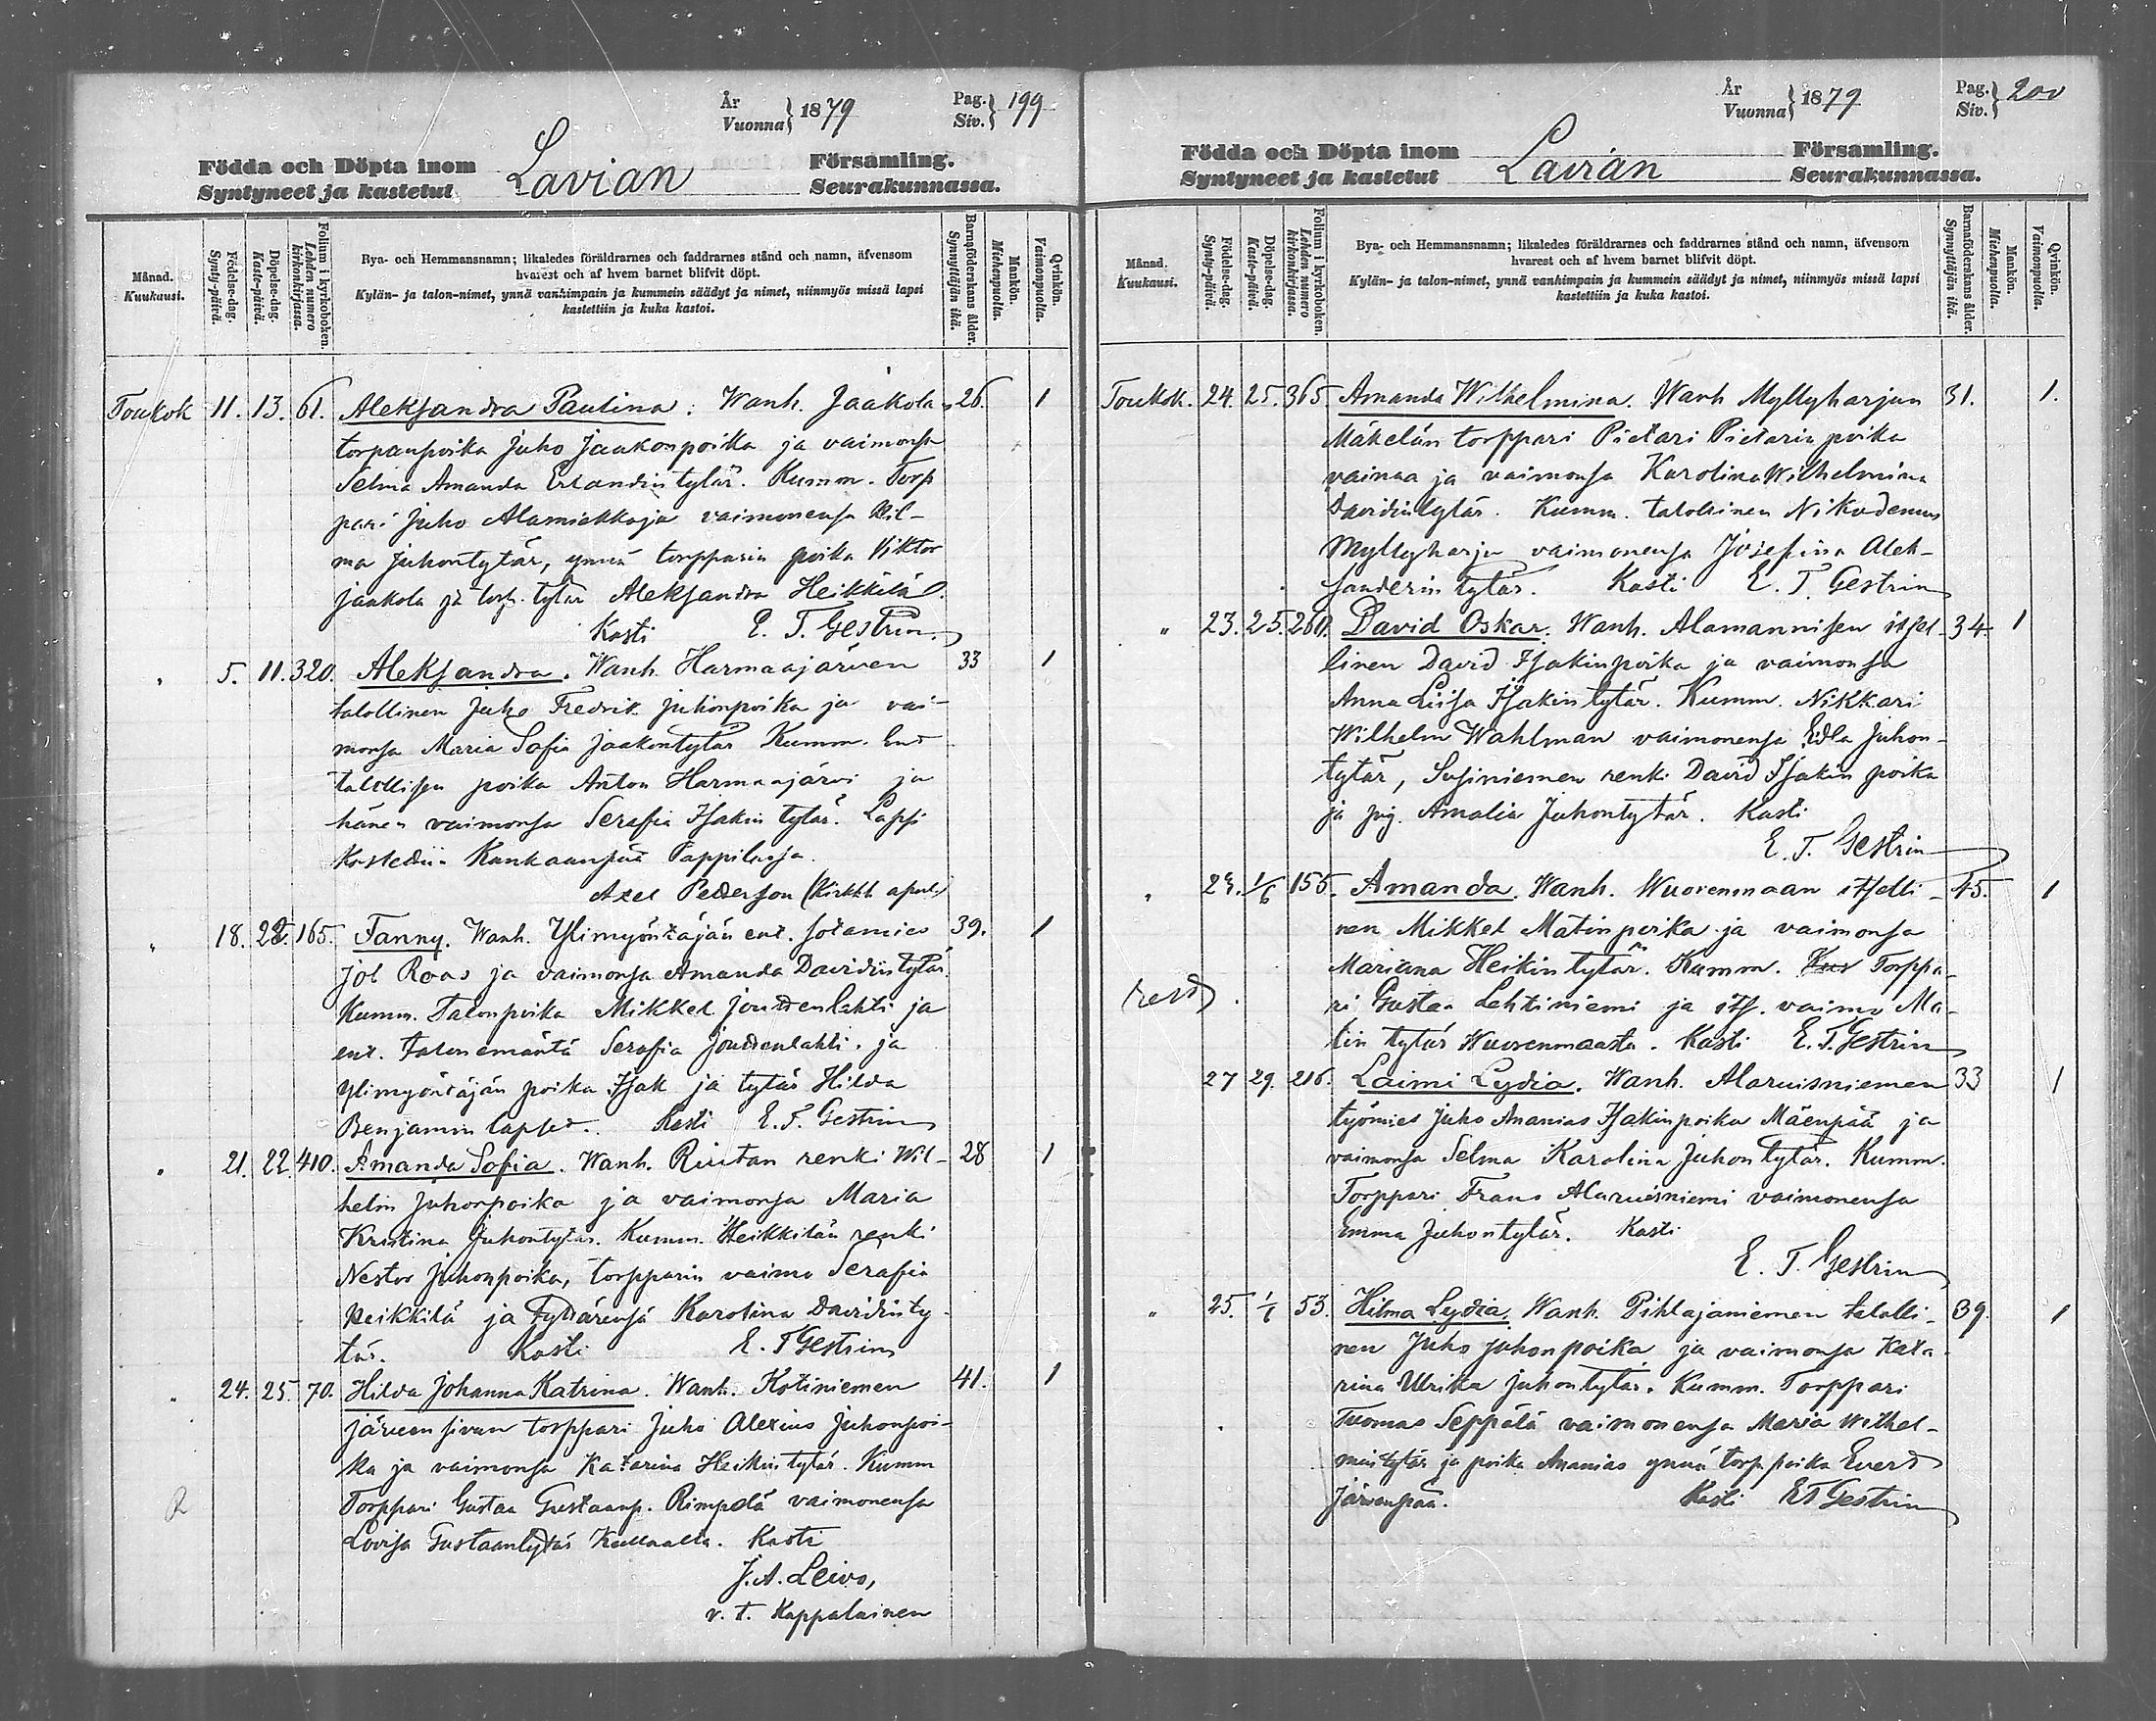 År
Vuonna } 1879
Pag.
Siv. } 199
Födda och Döpta inom
Syntyneet ja kastetut
Lavian
Församling.
Seurakunnassa.
Månad.
Kuukausi.
Födelse-dag.
Synty-päivä.
Döpelse-dag.
Kaste-päivä.
Folium i kyrkoboken.
Lehden numero kirkonkirjassa.
Bya- och Hemmansnamn; likaledes föräldrarnes och faddrarnes stånd och namn, äfvensom
hvarest och af hvem barnet blifvit döpt.
Kylän- ja talon-nimet, ynnä vanhimpain ja kummein säädyt ja nimet, niinmyös missä lapsi
kastettiin ja kuka kastoi.
Barnaföderskans ålder.
Synnyttäjän ikä.
Mankön.
Miehenpuolta.
Qvinkön.
Vaimonpuolta.
Toukok 11. 13. 61. Aleksandra Paulina. Wanh. Jaakola 26. 1
torpanpoika Juho Jaakonpoika ja vaimonsa
Selma Amanda Erlandintytär. Kumm. Torp
pari Juho Alamiekkoja vaimonensa Hil-
ma Juhontytär, ynnä torpparin poika Viktor
Jaakola ja torp. tytär Aleksandra Heikkilä.
Kasti E. T. Gestrin.
" 5. 11. 320. Aleksandra. Wanh. Harmaajärven 33 1
talollinen Juho Fredrik Juhonpoika ja vai-
monsa Maria Sofia Jaakontytär Kumm. Ent
talollisen poika Anton Harmaajärvi ja
hänen vaimonsa Serafia Isakin tytär. Lapsi
Kastettiin Kankaanpää Pappilassa.
Axel Petterson (Kirkkh. apul.)
" 18. 22. 165. Fanny. Wanh. Ylimyöntäjän ent. sotamies 39. 1
Jol Roos ja vaimonsa Amanda Davidintytär.
Kumm. Talonpoika Mikkel Jouttenlahti ja
ent. talonemäntä Serafia Jouttenlahti. ja
Ylimyöntäjän poika Isak ja tytär Hilda
Benjamin lapset. Kasti E. T. Gestrin
" 21. 22. 410. Amanda Sofia. Wanh. Riutan renki Wil- 28 1
helm Juhonpoika ja vaimonsa Maria
Kristina Juhontytär. Kumm. Heikkilän renki
Nestor Juhonpoika, torpparin vaimo Serafia
Heikkilä ja tyttärensä Karolina Davidinty-
tär. Kasti E. T Gestrin
" 24. 25. 70. Hilda Johanna Katrina. Wanh. Kotiniemen 41. 1
Järvensivun torppari Juho Alexius Juhonpoi-
ka ja vaimonsa Katarina Heikintytär. Kumm
Torppari Gustaa Gustaanp. Rimpelä vaimonensa
Lovisa Gustaantytär Kullaalta. Kasti
J. A. Leivo,
v. t. Kappalainen
R
År
Vuonna } 1879
Pag.
Siv. } 200
Födda och Döpta inom
Syntyneet ja kastetut
Lavian
Församling.
Seurakunnassa.
Månad.
Kuukausi.
Födelse-dag.
Synty-päivä.
Döpelse-dag.
Kaste-päivä.
Folium i kyrkoboken.
Lehden numero kirkonkirjassa.
Bya- och Hemmansnamn; likaledes föräldrarnes och faddrarnes stånd och namn, äfvensom
hvarest och af hvem barnet blifvit döpt.
Kylän- ja talon-nimet, ynnä vanhimpain ja kummein säädyt ja nimet, niinmyös missä lapsi
kastettiin ja kuka kastoi.
Barnaföderskans ålder.
Synnyttäjän ikä.
Mankön.
Miehenpuolta.
Qvinkön.
Vaimonpuolta.
Toukok. 24. 25. 365 Amanda Wilhelmina. Wanh Myllyharjun 31. 1.
Mäkelän torppari Pietari Pietarin poika
vainaa ja vaimonsa Karolina Wilhelmina
Davidintytär. Kumm. talollinen Nikodemus
Myllyharju vaimonensa Josefina Alek-
sanderin tytär. Kasti E. T. Gestrin
" 23. 25. 260. David Oskar. Wanh. Alamannisen itsel- 34 1
linen David Isakinpoika ja vaimonsa
Anna Liisa Isakin tytär. Kumm. Nikkari
Wilhelm Wahlman vaimonensa Edla Juhon-
tytär, Susiniemen renki David Isakin poika
ja pig. Amalia Juhontytär. Kasti
E. T. Gestrin
" 29. 1/6 155. Amanda. Wanh. Wuorenmaan itselli- 45. 1
nen Mikkel Matinpoika ja vaimonsa
Mariana Heikintytär. Kumm. Torppa-
ri Gustaa Lehtiniemi ja its. vaimo Ma-
tin tytär Wuorenmaasta. Kasti E. T. Gestrin
27 29. 216. Laimi Lydia. Wanh. Alaruisniemen 33 1
työmies Juho Ananias Isakinpoika Mäenpää ja
vaimonsa Selma Karolina Juhontytär. Kumm.
Torppari Frans Alaruisniemi vaimonensa
Emma Juhontytär. Kasti
E. T. Gestrin
" 25. 53. Hilma Lydia. Wanh. Pihlajaniemen talolli- 39. 1
nen Juho Juhonpoika ja vaimonsa Kata-
rina Ulrika Juhontytär. Kumm. Torppari
Tuomas Seppälä vaimonensa Maria Wilhel-
mintytär ja poika Ananias ynnä torp. poika Evert
Järvenpää. Kasti E T Gestrin